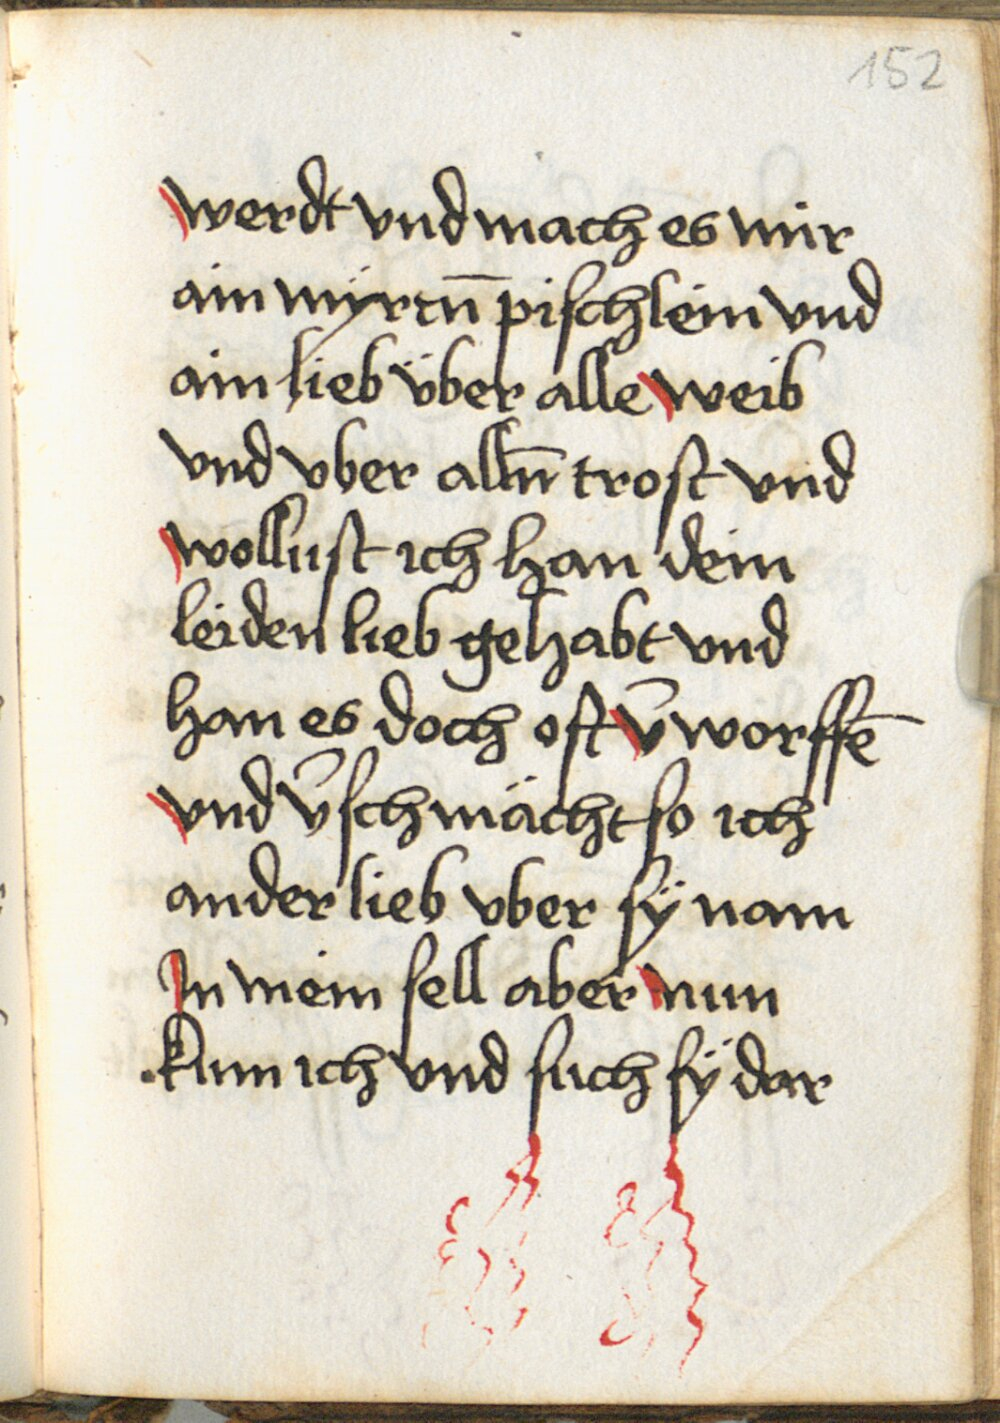 152
werdt vnd mach es mir
ain myrcn̄ piſchlein vnd
ain lieb über alle weib
vnd vber alln̄ troſt vnd
wolluſt ich han dein
leiden lieb gehabt vnd
han es doch oft v̄worffē
vnd v̄ſchmächt ſo ich
ander lieb vber ſÿ nam
In mein ſell aber nun
kum ich vnd ſuch ſÿ dar